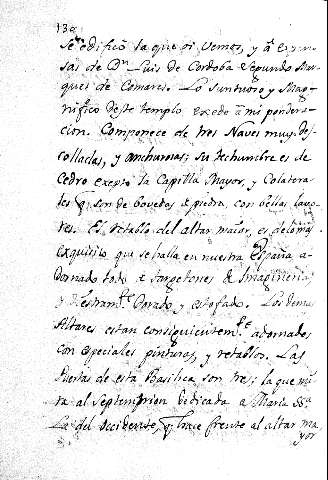 130
Se edificó la que oi vemos, y à expen-
sas de Dn Luis de Cordoba Segundo Mar-
ques de Comares. Lo Suntuoso y Mag-
nifico deste templo excede à mi pondera-
cion. Componece de tres Naves muy des-
colladas, y anchurosas; su techumbre es de
Cedro exepto la Capilla Mayor, y Colatera-
les q.e son de bovedas de piedra, con bellas lavo-
res. El retablo del altar maior, es de lo mas
exquisito que se halla en nuestra España a-
dornado todo de targetones de Imagineria
diestram.te Dorado y estofado. Los demas
Altares estan consiguientem.te adornados
con especiales pinturas, y retablos. Las
Puertas de esta Basilica son tres; la que mi-
ra al Septemtrion Dedicada a Maria SS.a
La del Occidente, q hace frente al altar ma-
yor